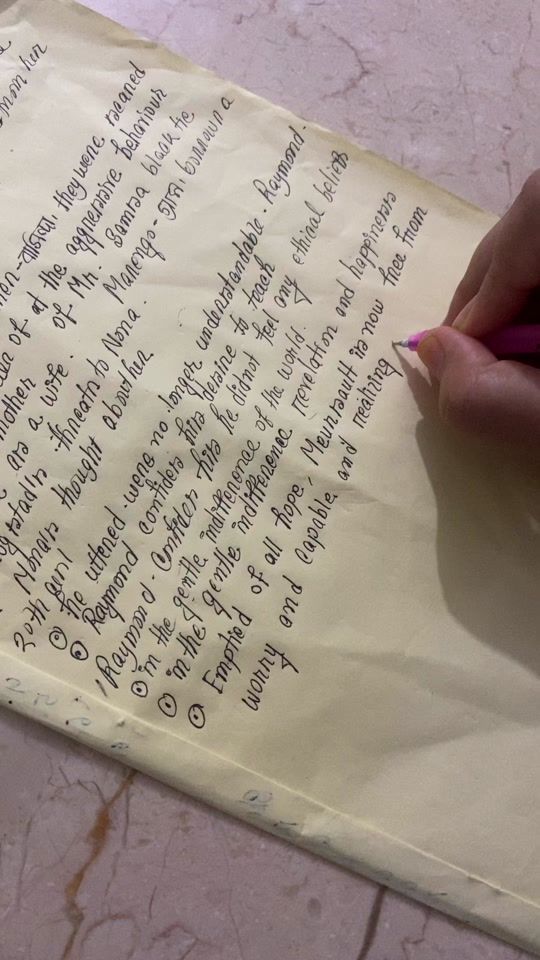 her
they were
at the aggressive behaviour
mother of Mr. Samsa black tie
as a wife.
threats to Nora.
thought about her
20th April
he uttered were no longer understandable. Raymond.
Raymond confides his desire to teach
Raymond - confides his he didnot feel any ethical beliefs
in the gentle indifference of the world.
in the gentle indifference revelation and happiness
Emptied of all hope, Meursault is now free from
worry and capable and realizing